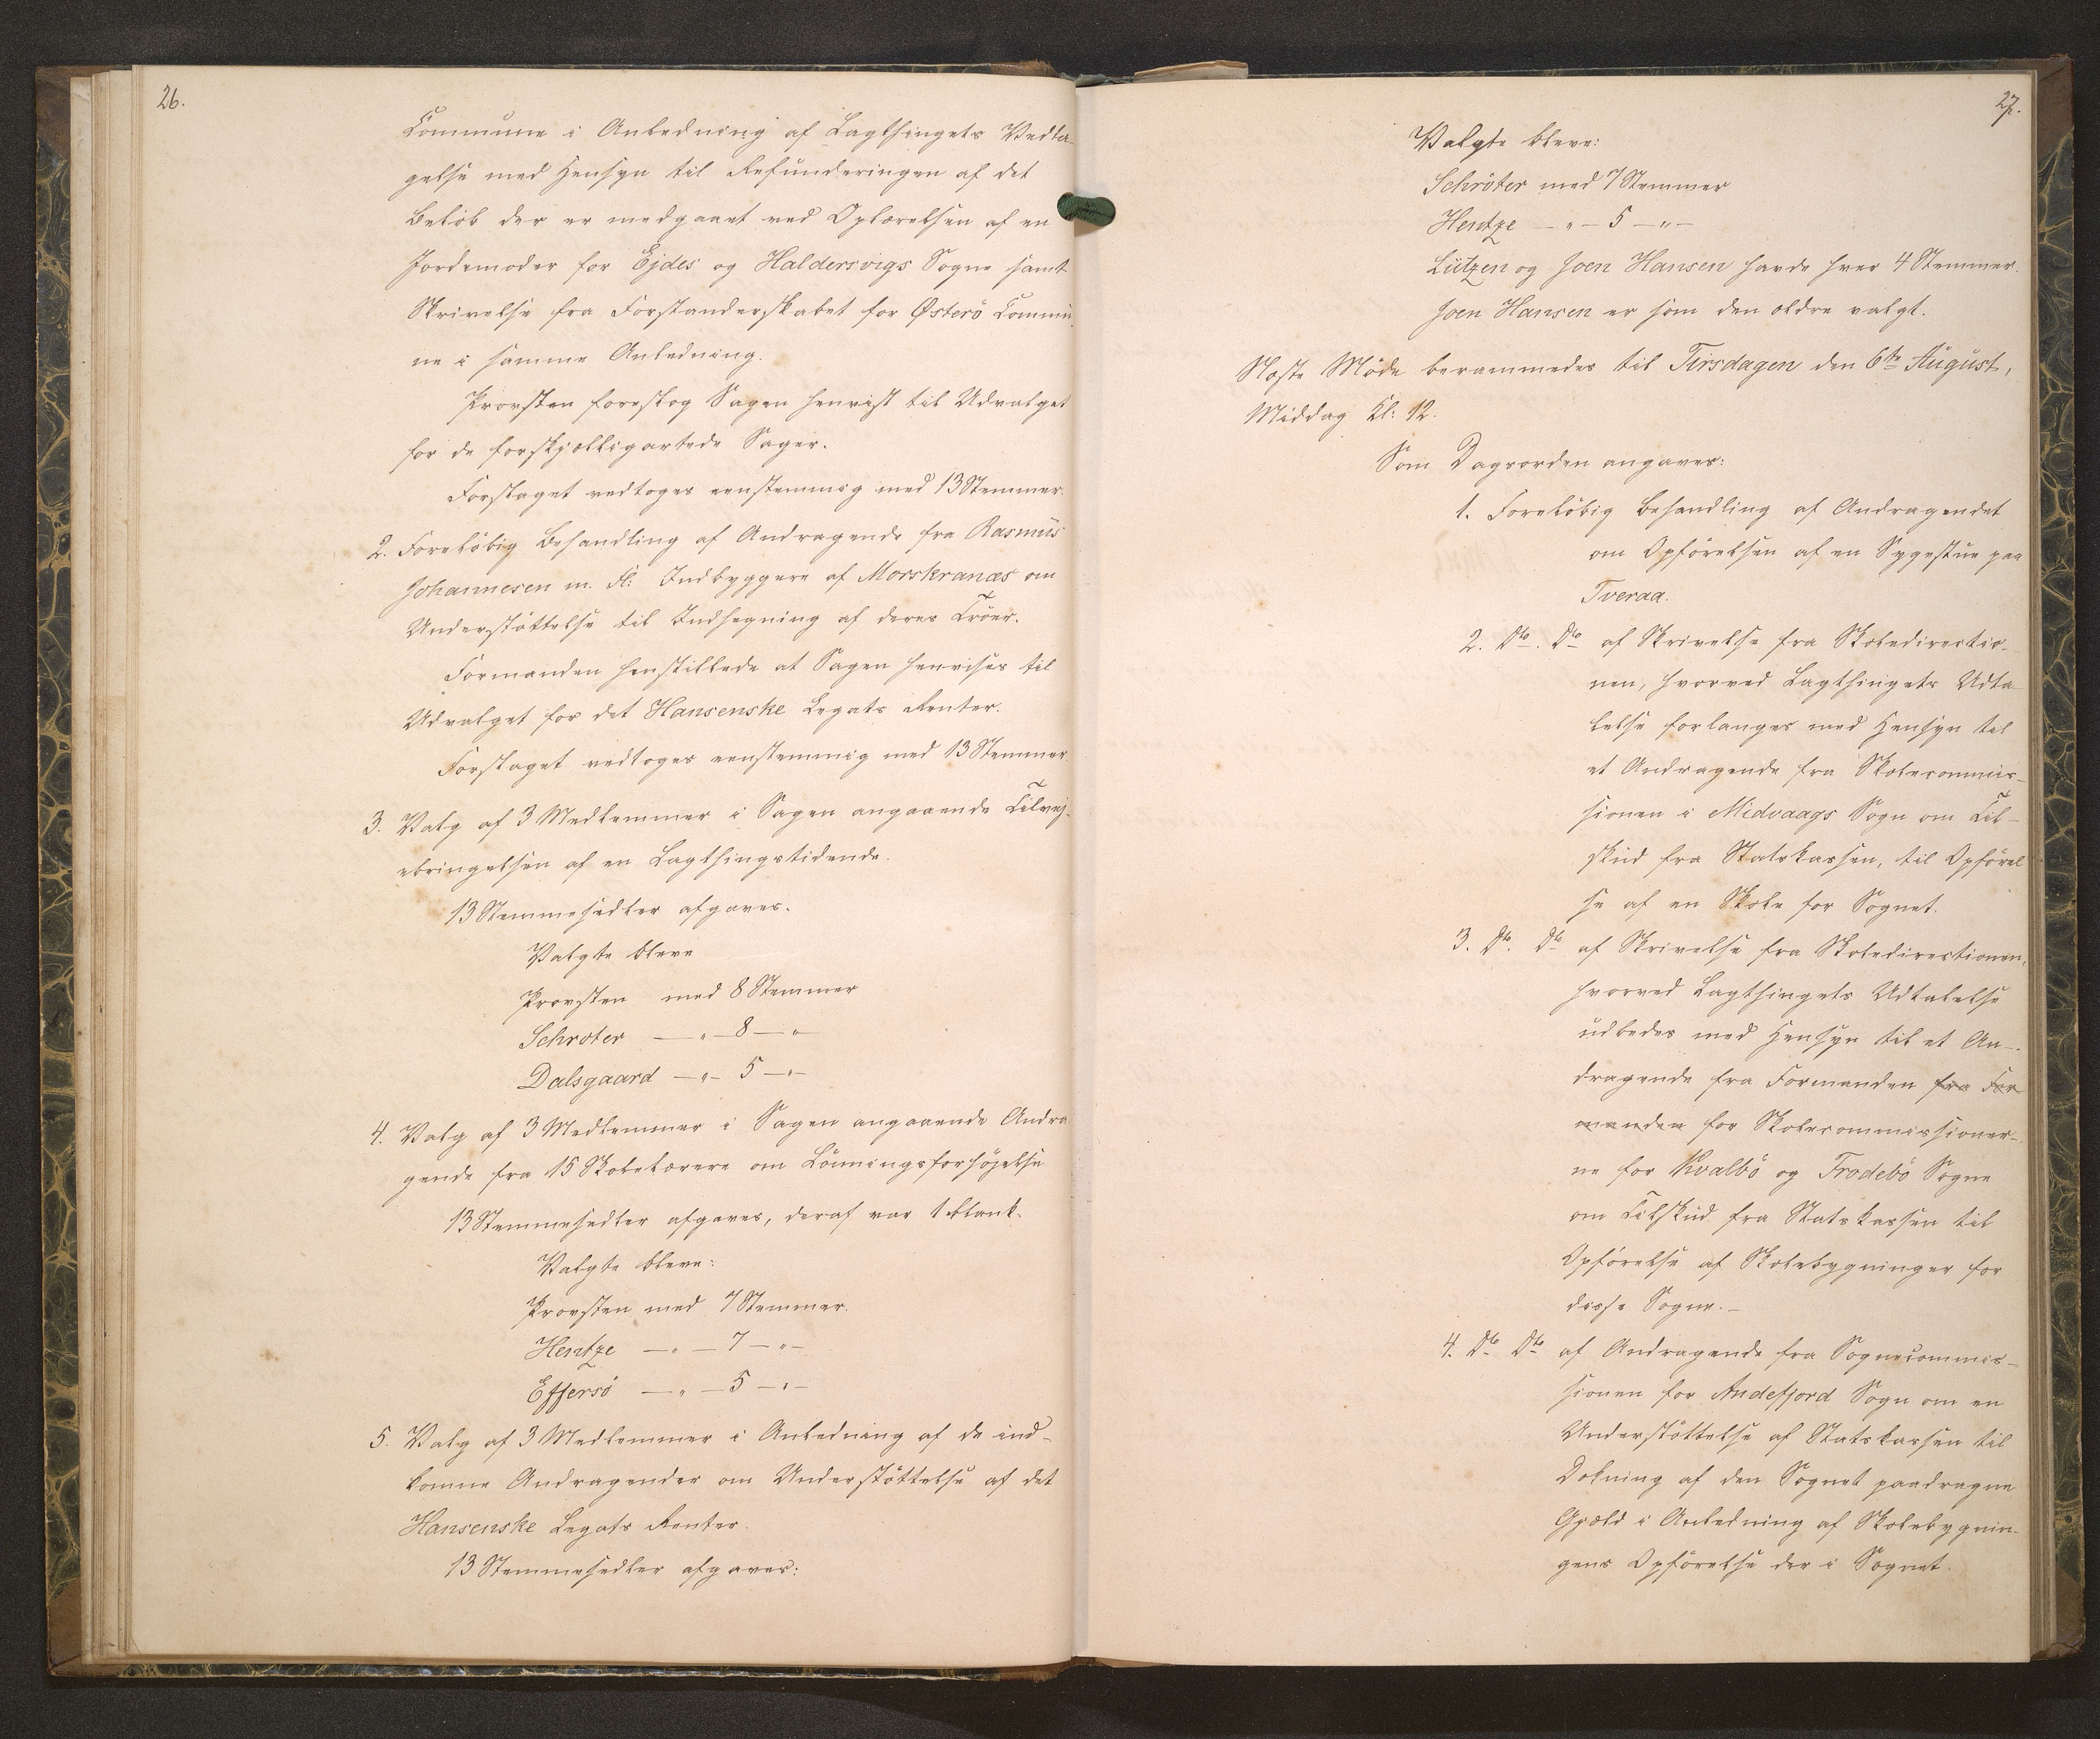 26.
Commune i Anledning af Lagthingets Vedta-
gelse med Hensyn til Refunderingen af det
Beløb der er medgaaet ved Oplærelsen af en
Jordemoder for Ejdes og Haldersvigs Sogne samt
Skrivelse fra Forstanderskabet for Østerö Commu-
ne i samme Anledning.
Provsten foreslog Sagen henvist til Udvalget
for de forskjelligartede Sager.
Forslaget vedtoges eenstemmig med 13 Stemmer.
2. Foreløbig Behandling af Andragende fra Rasmus
Johannesen m. Fl. Indbyggere af Morskranæs om
Understøttelse til Indhegning af deres Tröer.
Formanden henstillede at Sagen henvises til
Udvalget for det Hansenske Legats Renter.
Forslaget vedtoges eenstemmig med 13 Stemmer
3. Valg af 3 Medlemmer i Sagen angaaende Tilvej-
ebringelsen af en Lagthingstidende.
13 Stemmesedler afgaves.
Valgte bleve
Provsten med 8 Stemmer
Schroter — " — 8 — "
Dalsgaard — " — 5 — " —
4. Valg af 3 Medlemmer i Sagen angaaende Andra
gende fra 15 Skolelærere om Lönningsforhöjelse
13 Stemmesedler afgaves, deraf var 1 blank.
Valgte bleve:
Provsten med 7 Stemmer.
Hentze — " — 7 — " —
Effersö — " — 5 — " —
5. Valg af 3 Medlemmer i Anledning af de ind-
komne Andragender om Understøttelse af det
Hansenske Legats Renter.
13 Stemmesedler afgaves:
27.
Valgte bleve:
Schröter med 7 Stemmer
Hentze — " — 5 — " —
Lützen og Joen Hansen havde hver 4 Stemmer.
Joen Hansen er som den ældre valgt.
Næste Møde berammedes til Tirsdagen den 6te August,
Middag Kl: 12.
Som Dagsorden angaves:
1. Foreløbig Behandling af Andragendet
om Opførelsen af en Sygestue paa
Tveraa.
2. Do. Do af Skrivelse fra Skoledirectio-
nen, hvorved Lagthingets Udta-
lelse forlanges med Hensyn til
et Andragende fra Skolecommis-
sionen i Midvaags Sogn om Til-
skud fra Statskassen, til Opførel
se af en Skole for Sognet.
3. Do. Do af Skrivelse fra Skoledirectionen,
hvorved Lagthingets Udtalelse
udbedes med Hensyn til et An-
dragende fra Formanden fra For
manden for Skolecommissioner-
ne for Kvalbö og Frodebö Sogne
om Tilskud fra Statskassen til
Opførelse af Skolebygninger for
disse Sogne. —
4. Do Do af Andragende fra Sognecommis-
sionen for Andefjord Sogn om en
Understøttelse af Statskassen til
Dækning af den Sognet paadragne
Gjæld i Anledning af Skolebygnin-
gens Opførelse der i Sognet